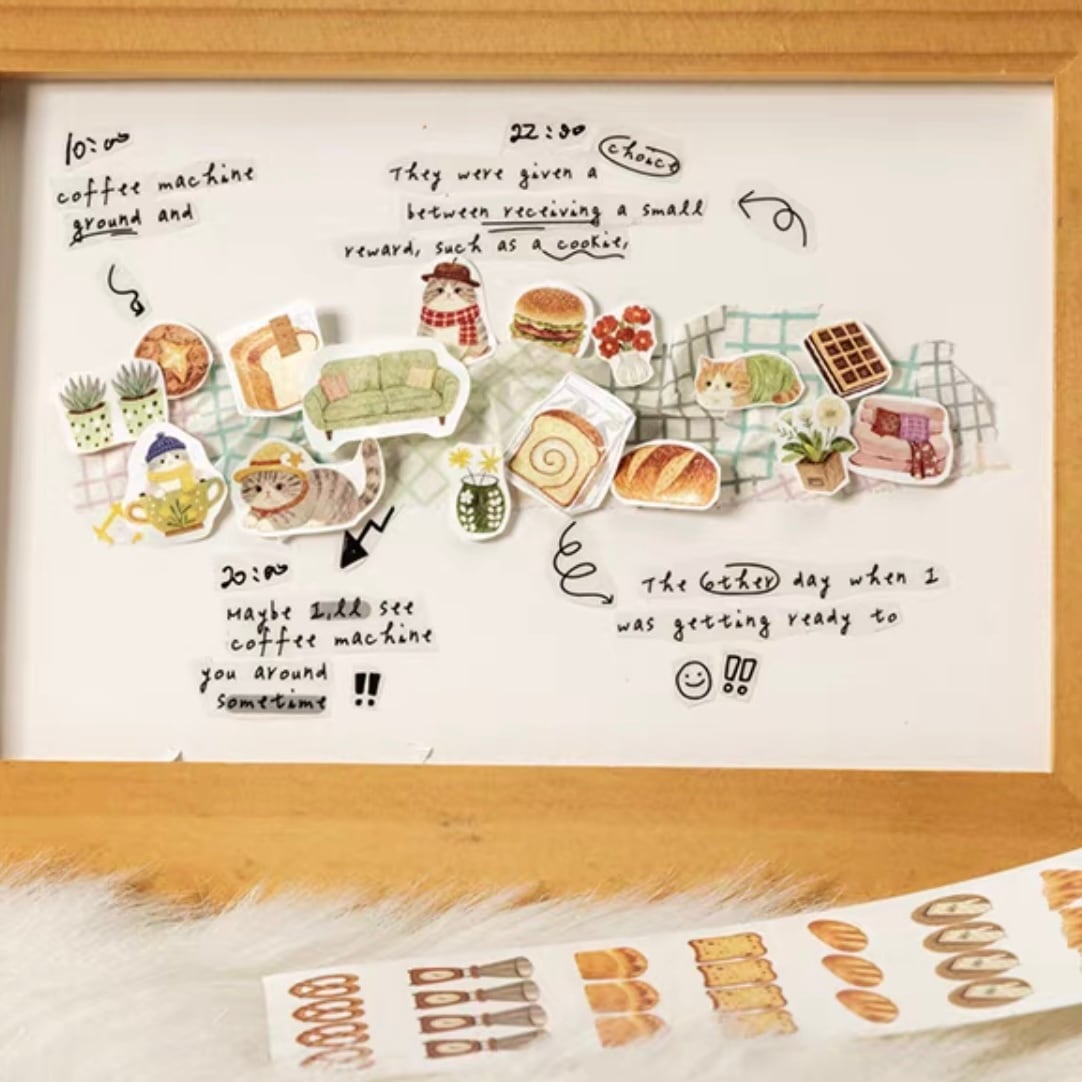 10:00
coffee machine
ground and
22:00
They were given a choice
between receiving a small
reward, such as a cookie,
20:00
Maybe I,ll see
coffee machine
you around
sometime !!
The other day when I
was getting ready to
!!